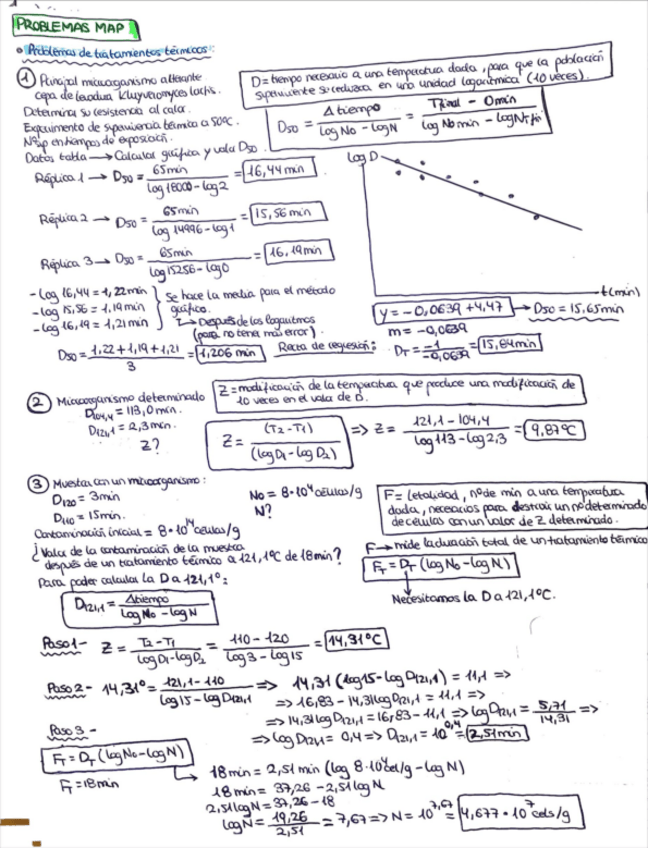 PROBLEMAS MAP
• Problemas de tratamientos térmicos:
① Principal microorganismo alterante
cepa de levadura Kluyveromyces lactis.
Determina su resistencia al calor.
Experimento de supervivencia térmica a 50ºC.
Nº sp en tiempos de exposición.
Datos tabla → Calcular gráfica y valor D50.
D= tiempo necesario a una temperatura dada, para que la población
superviviente se reduzca en una unidad logarítmica (10 veces).
D50 = Δtiempo / (log No - log N) = (Tfinal - 0min) / (log N0min - log Ntfin)
Réplica 1 → D50 = 65min / (log 18000 - log 2) = 16,44 min
Réplica 2 → D50 = 65min / (log 14996 - log 1) = 15,56 min
Réplica 3 → D50 = 65min / (log 15256 - log 0) = 16,19 min
Log D
t(min)
- log 16,44 = 1,22 min
- log 15,56 = 1,19 min
- log 16,19 = 1,21 min
Se hace la media para el método
gráfico.
→ Después de los logaritmos
(para no tener más error).
y = -0,0639 + 4,47 → D50 = 15,65 min
m = -0,0639
D50 = (1,22 + 1,19 + 1,21) / 3 = 1,206 min
Recta de regresión: DT = -1 / -0,0639 = 15,64 min
② Microorganismo determinado
D104,4 = 113,0 min.
D121,1 = 2,3 min.
Z?
Z = modificación de la temperatura que produce una modificación de
10 veces en el valor de D.
Z = (T2 - T1) / (log D1 - log D2) => Z = (121,1 - 104,4) / (log 113 - log 2,3) = 9,87ºC
③ Muestras con un microorganismo:
D120 = 3min
D110 = 15min.
Contaminación inicial = 8·10⁴ células/g
No = 8·10⁴ células/g
N?
¿Valor de la contaminación de la muestra
después de un tratamiento térmico a 121,1ºC de 18min?
Para poder calcular la D a 121,1º:
F = Letalidad, nº de min a una temperatura
dada, necesarios para destruir un nº determinado
de células con un valor de Z determinado.
F → mide la duración total de un tratamiento térmico
FT = DT (log No - log N)
Necesitamos la D a 121,1ºC.
D121,1 = Δtiempo / (log No - log N)
Paso 1- Z = (T2 - T1) / (log D1 - log D2) = (110 - 120) / (log 3 - log 15) = 14,31ºC
Paso 2- 14,31º = (121,1 - 110) / (log 15 - log D121,1) => 14,31 (log 15 - log D121,1) = 11,1 =>
=> 16,83 - 14,31 log D121,1 = 11,1 =>
=> 14,31 log D121,1 = 16,83 - 11,1 => log D121,1 = 5,71 / 14,31 =>
=> log D121,1 = 0,4 => D121,1 = 10^0,4 = 2,51 min
Paso 3 -
FT = DT (log No - log N)
FT = 18min
18 min = 2,51 min (log 8·10⁴ cel/g - log N)
18 min = 37,26 - 2,51 log N
2,51 log N = 37,26 - 18
log N = 19,26 / 2,51 = 7,67 => N = 10^7,67 = 4,677·10⁷ cels/g